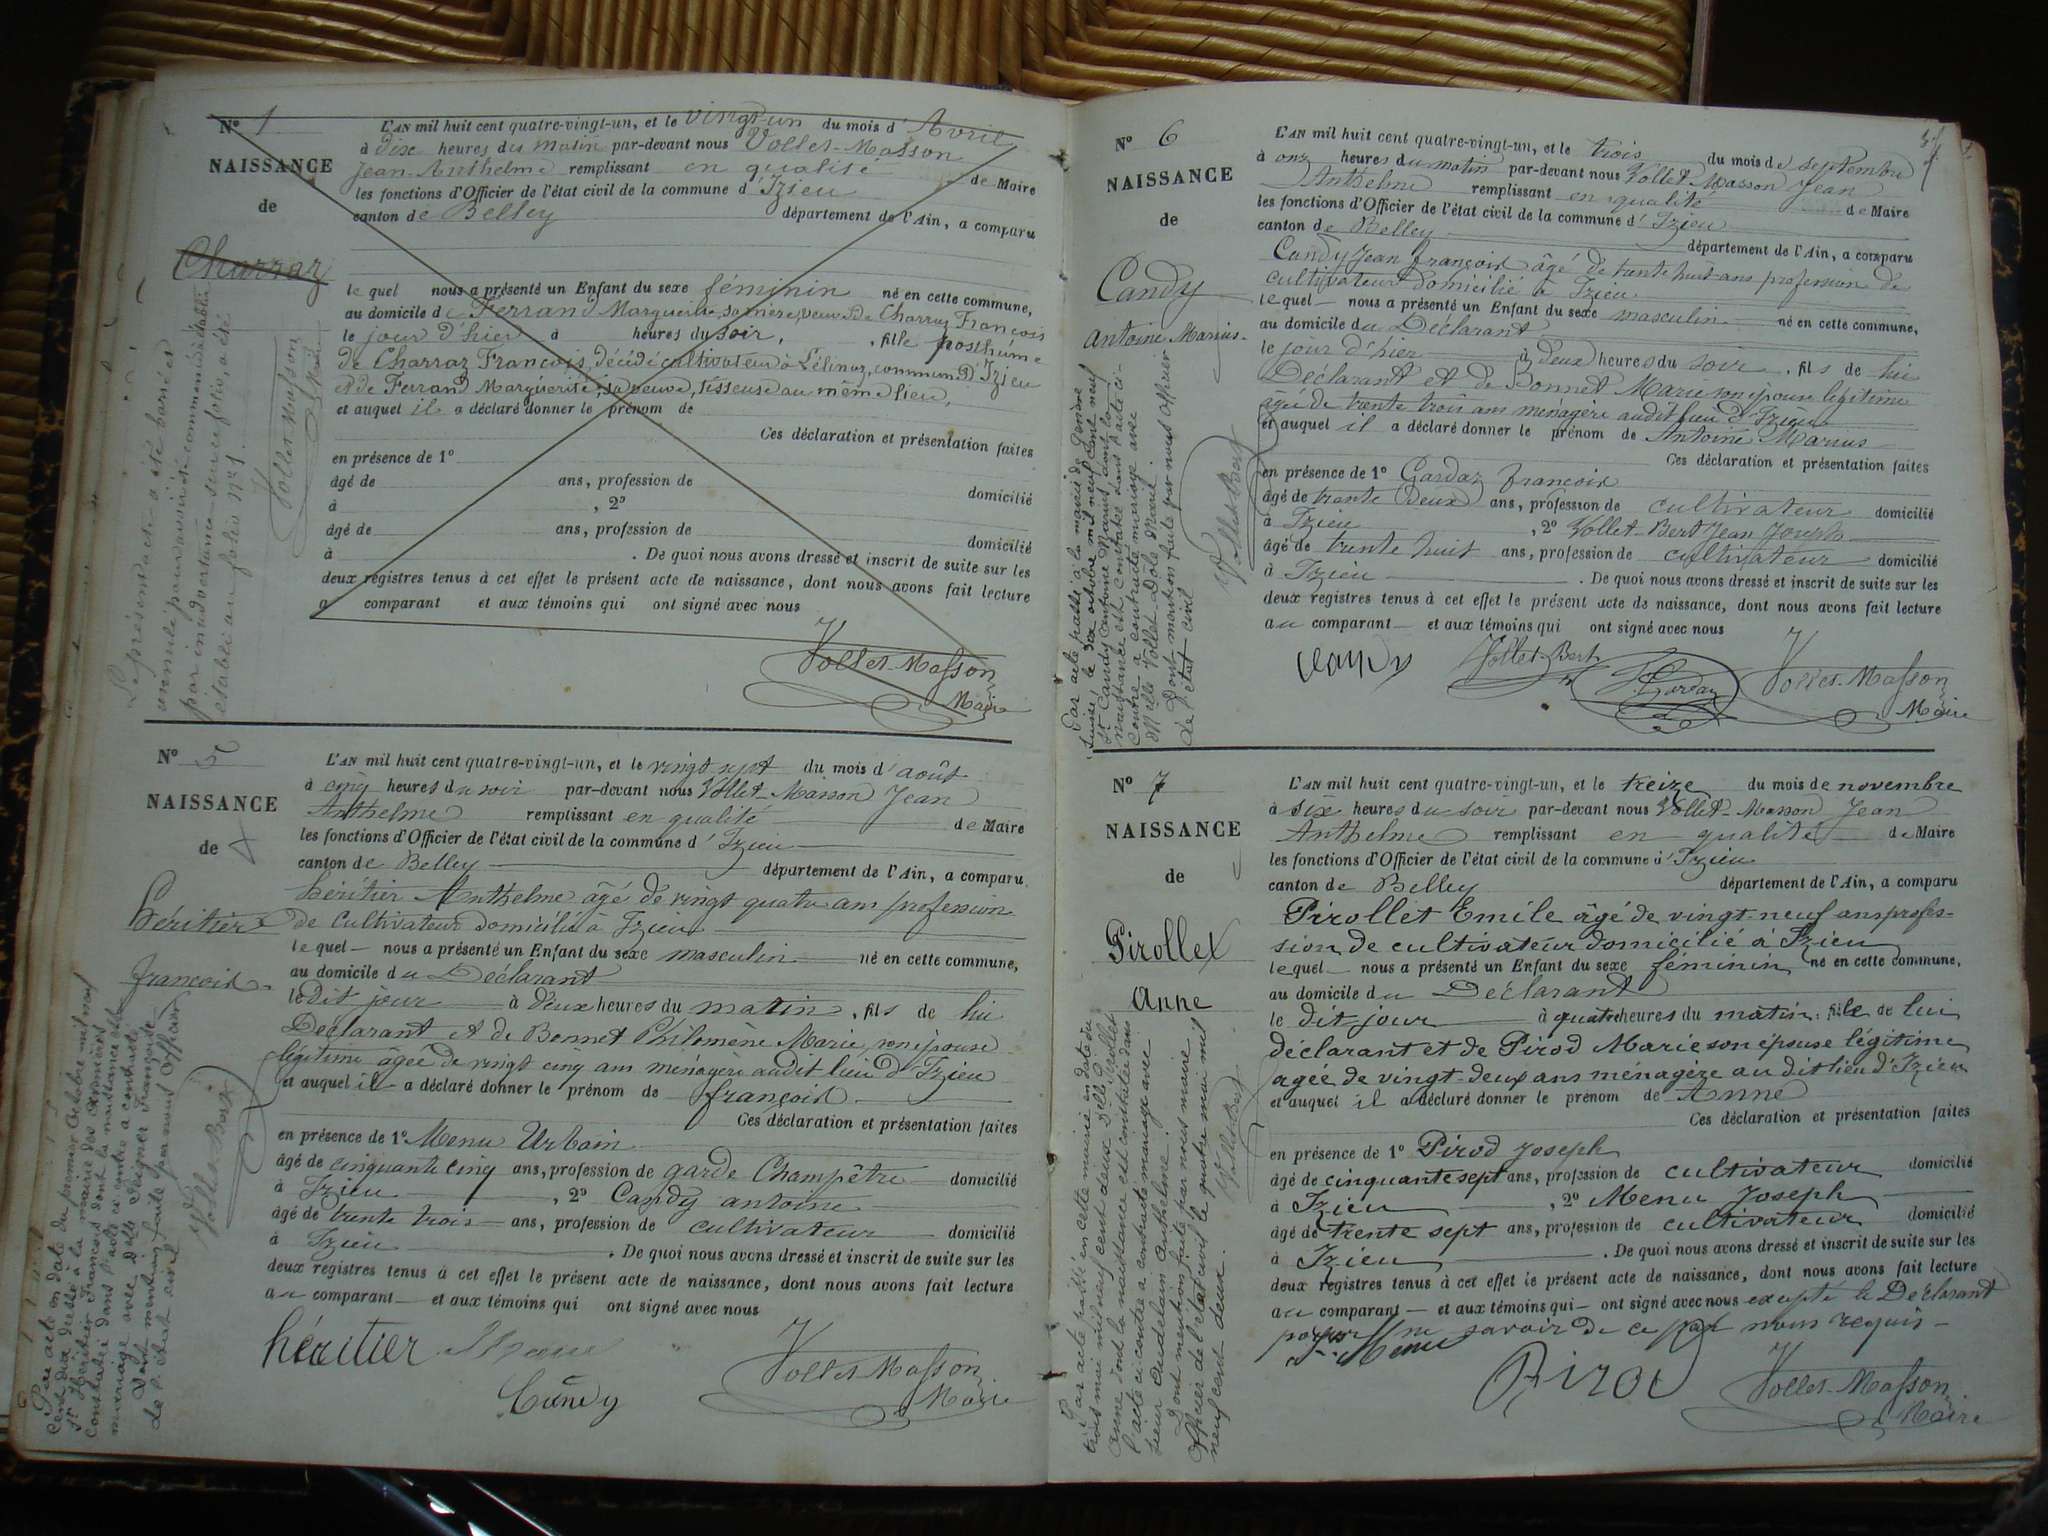 N° 1
NAISSANCE
de
Charraz
L'AN mil huit cent quatre-vingt-un, et le vingt-un du mois d'Avril
à dix heures du matin par-devant nous Vollet-Masson
Jean-Anthelme remplissant en qualité de Maire
les fonctions d'Officier de l'état civil de la commune d'Izieu
canton de Belley département de l'Ain, a comparu
lequel nous a présenté un Enfant du sexe féminin né en cette commune,
au domicile de Ferrand Marguerite, sa mère, veuve de Charraz François
le jour d'hier à heures du soir, fille posthume
de Charraz François, décédé cultivateur à Lélinaz, commune d'Izieu
et de Ferrand Marguerite, sa veuve, tisseuse au même lieu,
et auquel il a déclaré donner le prénom de
Ces déclaration et présentation faites
en présence de 1°
âgé de ans, profession de domicilié
à , 2°
âgé de ans, profession de domicilié
à . De quoi nous avons dressé et inscrit de suite sur les
deux registres tenus à cet effet le présent acte de naissance, dont nous avons fait lecture
a comparant et aux témoins qui ont signé avec nous
Vollet-Masson
Maire
Le présent acte a été barré et
annulé pour avoir été commencé d'établir
par inadvertance sur ce folio, a été
établi au folio N° 1.
Vollet-Masson
Maire
N° 5
NAISSANCE
de
héritier
françois
L'AN mil huit cent quatre-vingt-un, et le vingt sept du mois d'août
à cinq heures du soir par-devant nous Vollet-Masson Jean
Anthelme remplissant en qualité de Maire
les fonctions d'Officier de l'état civil de la commune d'Izieu
canton de Belley département de l'Ain, a comparu
héritier Anthelme âgé de vingt quatre ans profession
de cultivateur domicilié à Izieu
lequel nous a présenté un Enfant du sexe masculin né en cette commune,
au domicile du Déclarant
le dit jour à deux heures du matin, fils de lui
Déclarant et de Bonnet Philomène Marie, son épouse
légitime âgée de vingt cinq ans ménagère audit lieu d'Izieu
et auquel il a déclaré donner le prénom de françois
Ces déclaration et présentation faites
en présence de 1° Menu Urbain
âgé de cinquante cinq ans, profession de garde Champêtre domicilié
à Izieu , 2° Candy antoine
âgé de trente trois ans, profession de cultivateur domicilié
à Izieu . De quoi nous avons dressé et inscrit de suite sur les
deux registres tenus à cet effet le présent acte de naissance, dont nous avons fait lecture
au comparant et aux témoins qui ont signé avec nous
héritier
Candy
Vollet-Masson
Maire
Par acte en date du premier Octobre mil neuf
cent dix dressé à la mairie des
Sr Héritier François dont la naissance est
constatée dans l'acte ci contre a contracté
mariage avec Delle Françoise
Dont mention faite par nous Officier
de l'état civil
Vollet Bert
N° 6
NAISSANCE
de
Candy
Antoine Marius
L'AN mil huit cent quatre-vingt-un, et le trois du mois de septembre
à onz heures du matin par-devant nous Vollet Masson Jean
Anthelme remplissant en qualité de Maire
les fonctions d'Officier de l'état civil de la commune d'Izieu
canton de Belley département de l'Ain, a comparu
Candy Jean françois âgé de trente huit ans profession de
cultivateur domicilié à Izieu
lequel nous a présenté un Enfant du sexe masculin né en cette commune,
au domicile du Déclarant
le jour d'hier à deux heures du soir, fils de lui
Déclarant et de Bonnet Marie son épouse légitime
âgée de trente trois ans ménagère audit lieu d'Izieu
et auquel il a déclaré donner le prénom de Antoine Marius
Ces déclaration et présentation faites
en présence de 1° Gardaz françois
âgé de trente deux ans, profession de cultivateur domicilié
à Izieu , 2° Vollet-Bert Jean Joseph
âgé de trente huit ans, profession de cultivateur domicilié
à Izieu . De quoi nous avons dressé et inscrit de suite sur les
deux registres tenus à cet effet le présent acte de naissance, dont nous avons fait lecture
au comparant et aux témoins qui ont signé avec nous
Candy
Vollet-Bert
Gardaz
Vollet-Masson
Maire
Par acte passé à la mairie de Genève
Suisse, le six octobre mil neuf cent neuf
Sr Candy Antoine Marius dont la
naissance est constatée dans l'acte ci-
contre a contracté mariage avec
Melle Vollet-Dôle Marie.
Dont mention faite par nous Officier
de l'état-civil
Vollet Bert
N° 7
NAISSANCE
de
Pirollet
Anne
L'AN mil huit cent quatre-vingt-un, et le treize du mois de novembre
à six heures du soir par-devant nous Vollet-Masson Jean
Anthelme remplissant en qualité de Maire
les fonctions d'Officier de l'état civil de la commune d'Izieu
canton de Belley département de l'Ain, a comparu
Pirollet Emile âgé de vingt-neuf ans profes-
sion de cultivateur domicilié à Izieu
lequel nous a présenté un Enfant du sexe féminin né en cette commune,
au domicile du Déclarant
le dit jour à quatre heures du matin, fille de lui
déclarant et de Pirod Marie son épouse légitime
agée de vingt-deux ans ménagère au dit lieu d'Izieu
et auquel il a déclaré donner le prénom de Anne
Ces déclaration et présentation faites
en présence de 1° Pirod Joseph
âgé de cinquante sept ans, profession de cultivateur domicilié
à Izieu , 2° Menu Joseph
âgé de trente sept ans, profession de cultivateur domicilié
à Izieu . De quoi nous avons dressé et inscrit de suite sur les
deux registres tenus à cet effet le présent acte de naissance, dont nous avons fait lecture
au comparant et aux témoins qui ont signé avec nous excepté le Déclarant
pour ne savoir de ce par nous requis
Menu
Pirod
Vollet-Masson
Maire
Par acte passé en cette mairie en date du
trois mai mil neuf cent deux Delle Pirollet
Anne dont la naissance est constatée dans
l'acte ci contre a contracté mariage avec
sieur Anthelme.
Dont mention faite par nous maire
officier de l'état civil le quatre mai mil
neuf cent deux.
Vollet Bert